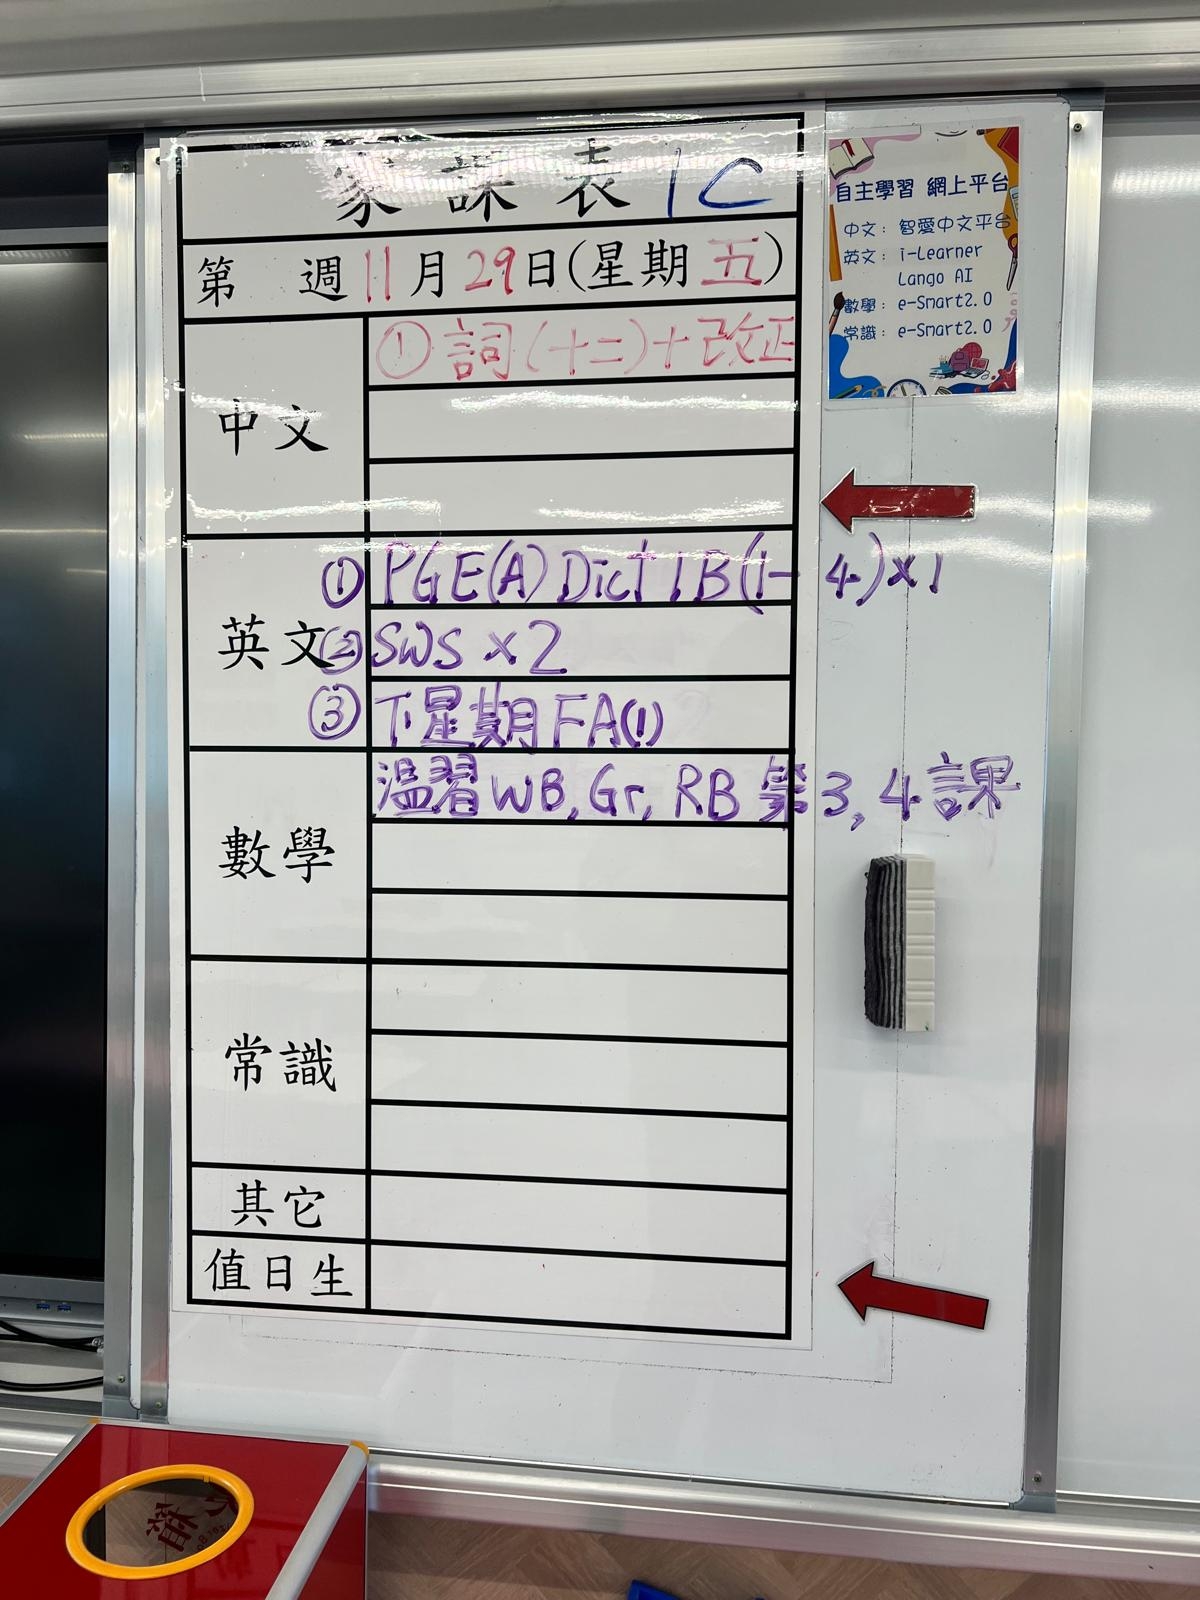 家課表 1C
第 週 11月29日(星期五)
中文
① 詞(十二)+改正
英文
① PGE(A) Dict 1B(1-4)×1
② SWS ×2
③ 下星期FA(1)
溫習WB, Gr, RB 第3, 4課
數學
常識
其它
值日生
自主學習 網上平台
中文： 智愛中文平台
英文： i-Learner
Lango AI
數學： e-Smart2.0
常識： e-Smart2.0